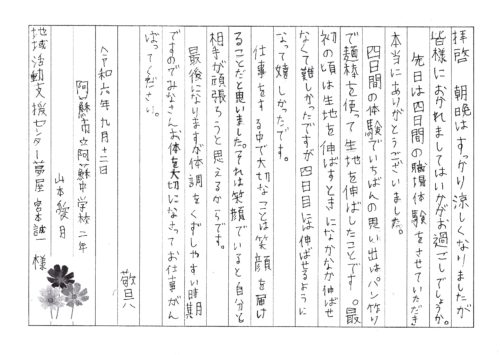 拝啓　朝晩はすっかり涼しくなりましたが
皆様におかれましてはいかがお過ごしでしょうか。
先日は四日間の職場体験をさせていただき
本当にありがとうございました。
四日間の体験でいちばんの思い出はパン作り
で麺棒を使って生地を伸ばしたことです。最
初の頃は生地を伸ばすときになかなか伸ばせ
なくて難しかったですが四日目には伸ばせるように
なって嬉しかったです。
仕事をする中で大切なことは笑顔を届け
ることだと思いました。それは笑顔でいると自分も
相手が頑張ろうと思えるからです。
最後になりますが体調をくずしやすい時期
ですのでみなさんお体を大切になさってお仕事がん
ばってください。
敬具
令和六年九月十二日
阿蘇市立阿蘇中学校二年
山本愛月
地域活動支援センター夢屋　宮本誠一　様